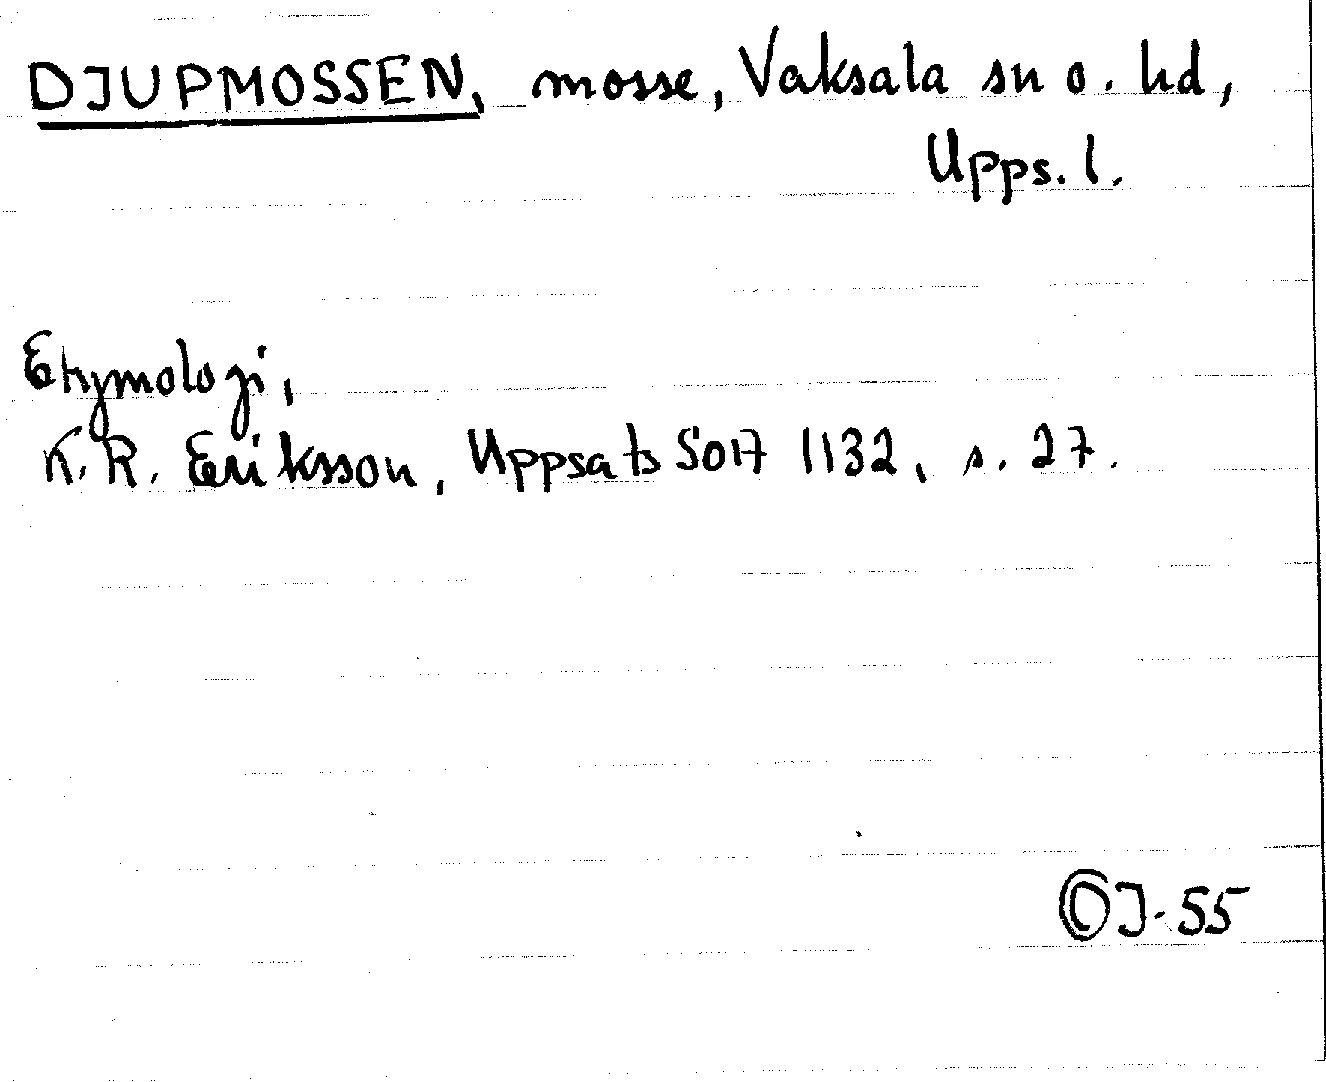 DJUPMOSSEN, mosse, Vaksala sn o. hd,
Upps. l.
Etymologi,
K. R. Eriksson, Uppsats SOA 1132, s. 27.
J-55